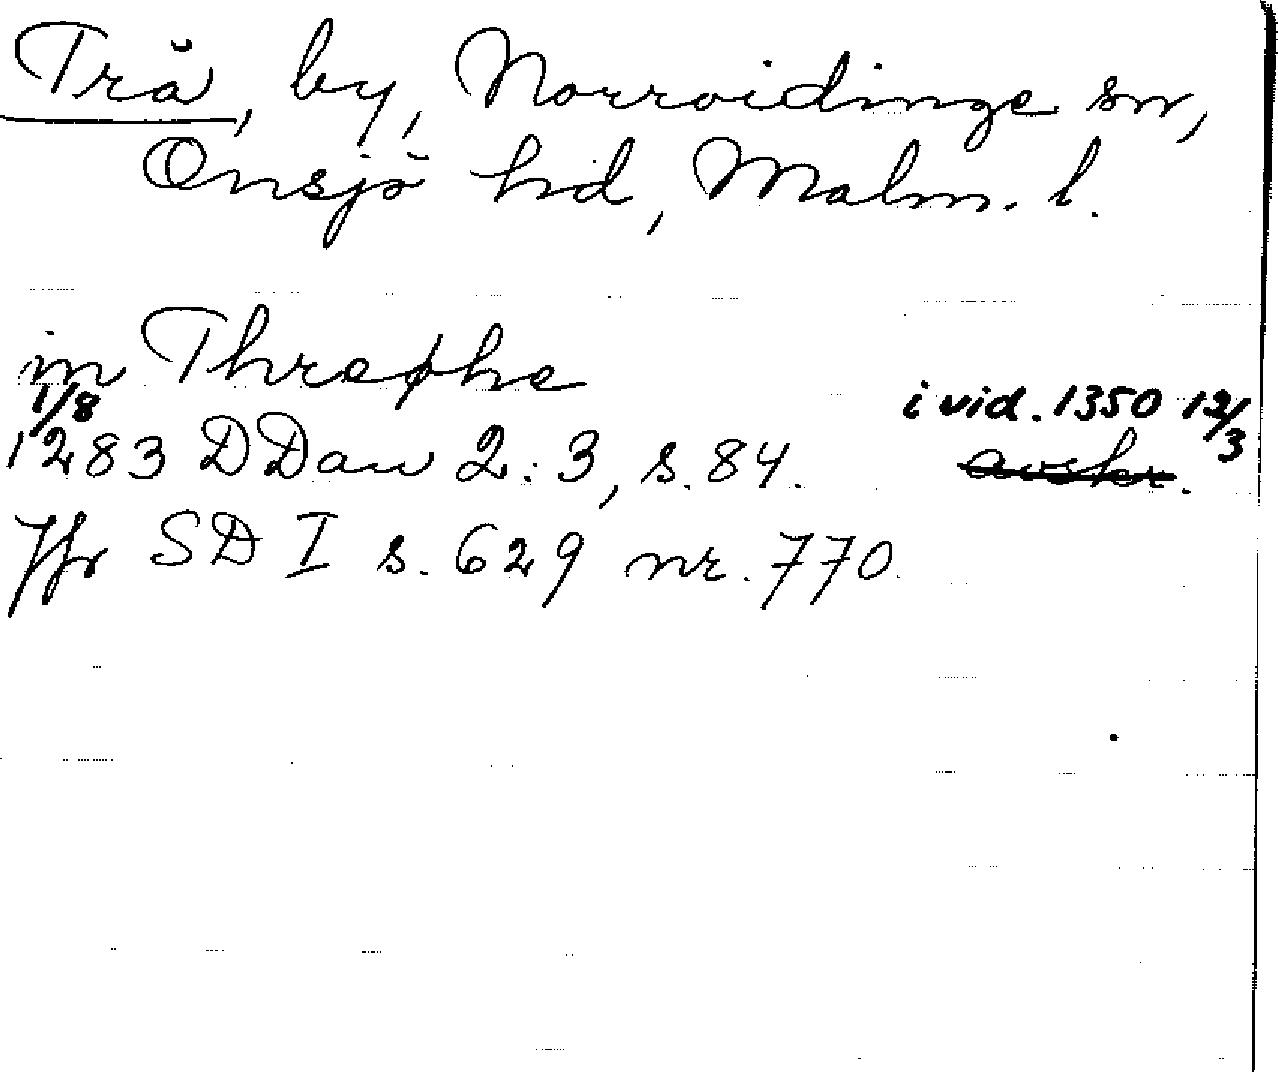 Trå, by, Norrvidinge sn,
Onsjö hd, Malm. l.
in Threphe
1/8 i vid. 1350 12/3
1283 DDan 2:3, s. 84. avskr.
Jfr SD I s. 629 nr. 770.